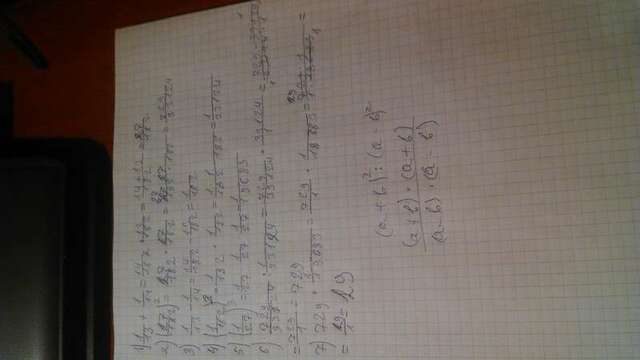 1) 1/13 + 1/14 = 14/182 + 13/182 = 14+13/182 = 27/182
2) (27/182)² = 27/182 · 27/182 = 27·27/182·182 = 729/33124
3) 1/13 - 1/14 = 14/182 - 13/182 = 1/182
4) (1/182)² = 1/182 · 1/182 = 1·1/182·182 = 1/33124
5) (1/27)³ = 1/27 · 1/27 · 1/27 = 1/19683
6) 729/33124 : 1/33124 = 729/33124 · 33124/1 =
= 729/1 = 729
7) 729 · 1/19683 = 729/1 · 1/19683 =
= 29/1 = 29
(a + b)² : (a - b)²
(a+b) · (a+b)
(a-b) · (a-b)